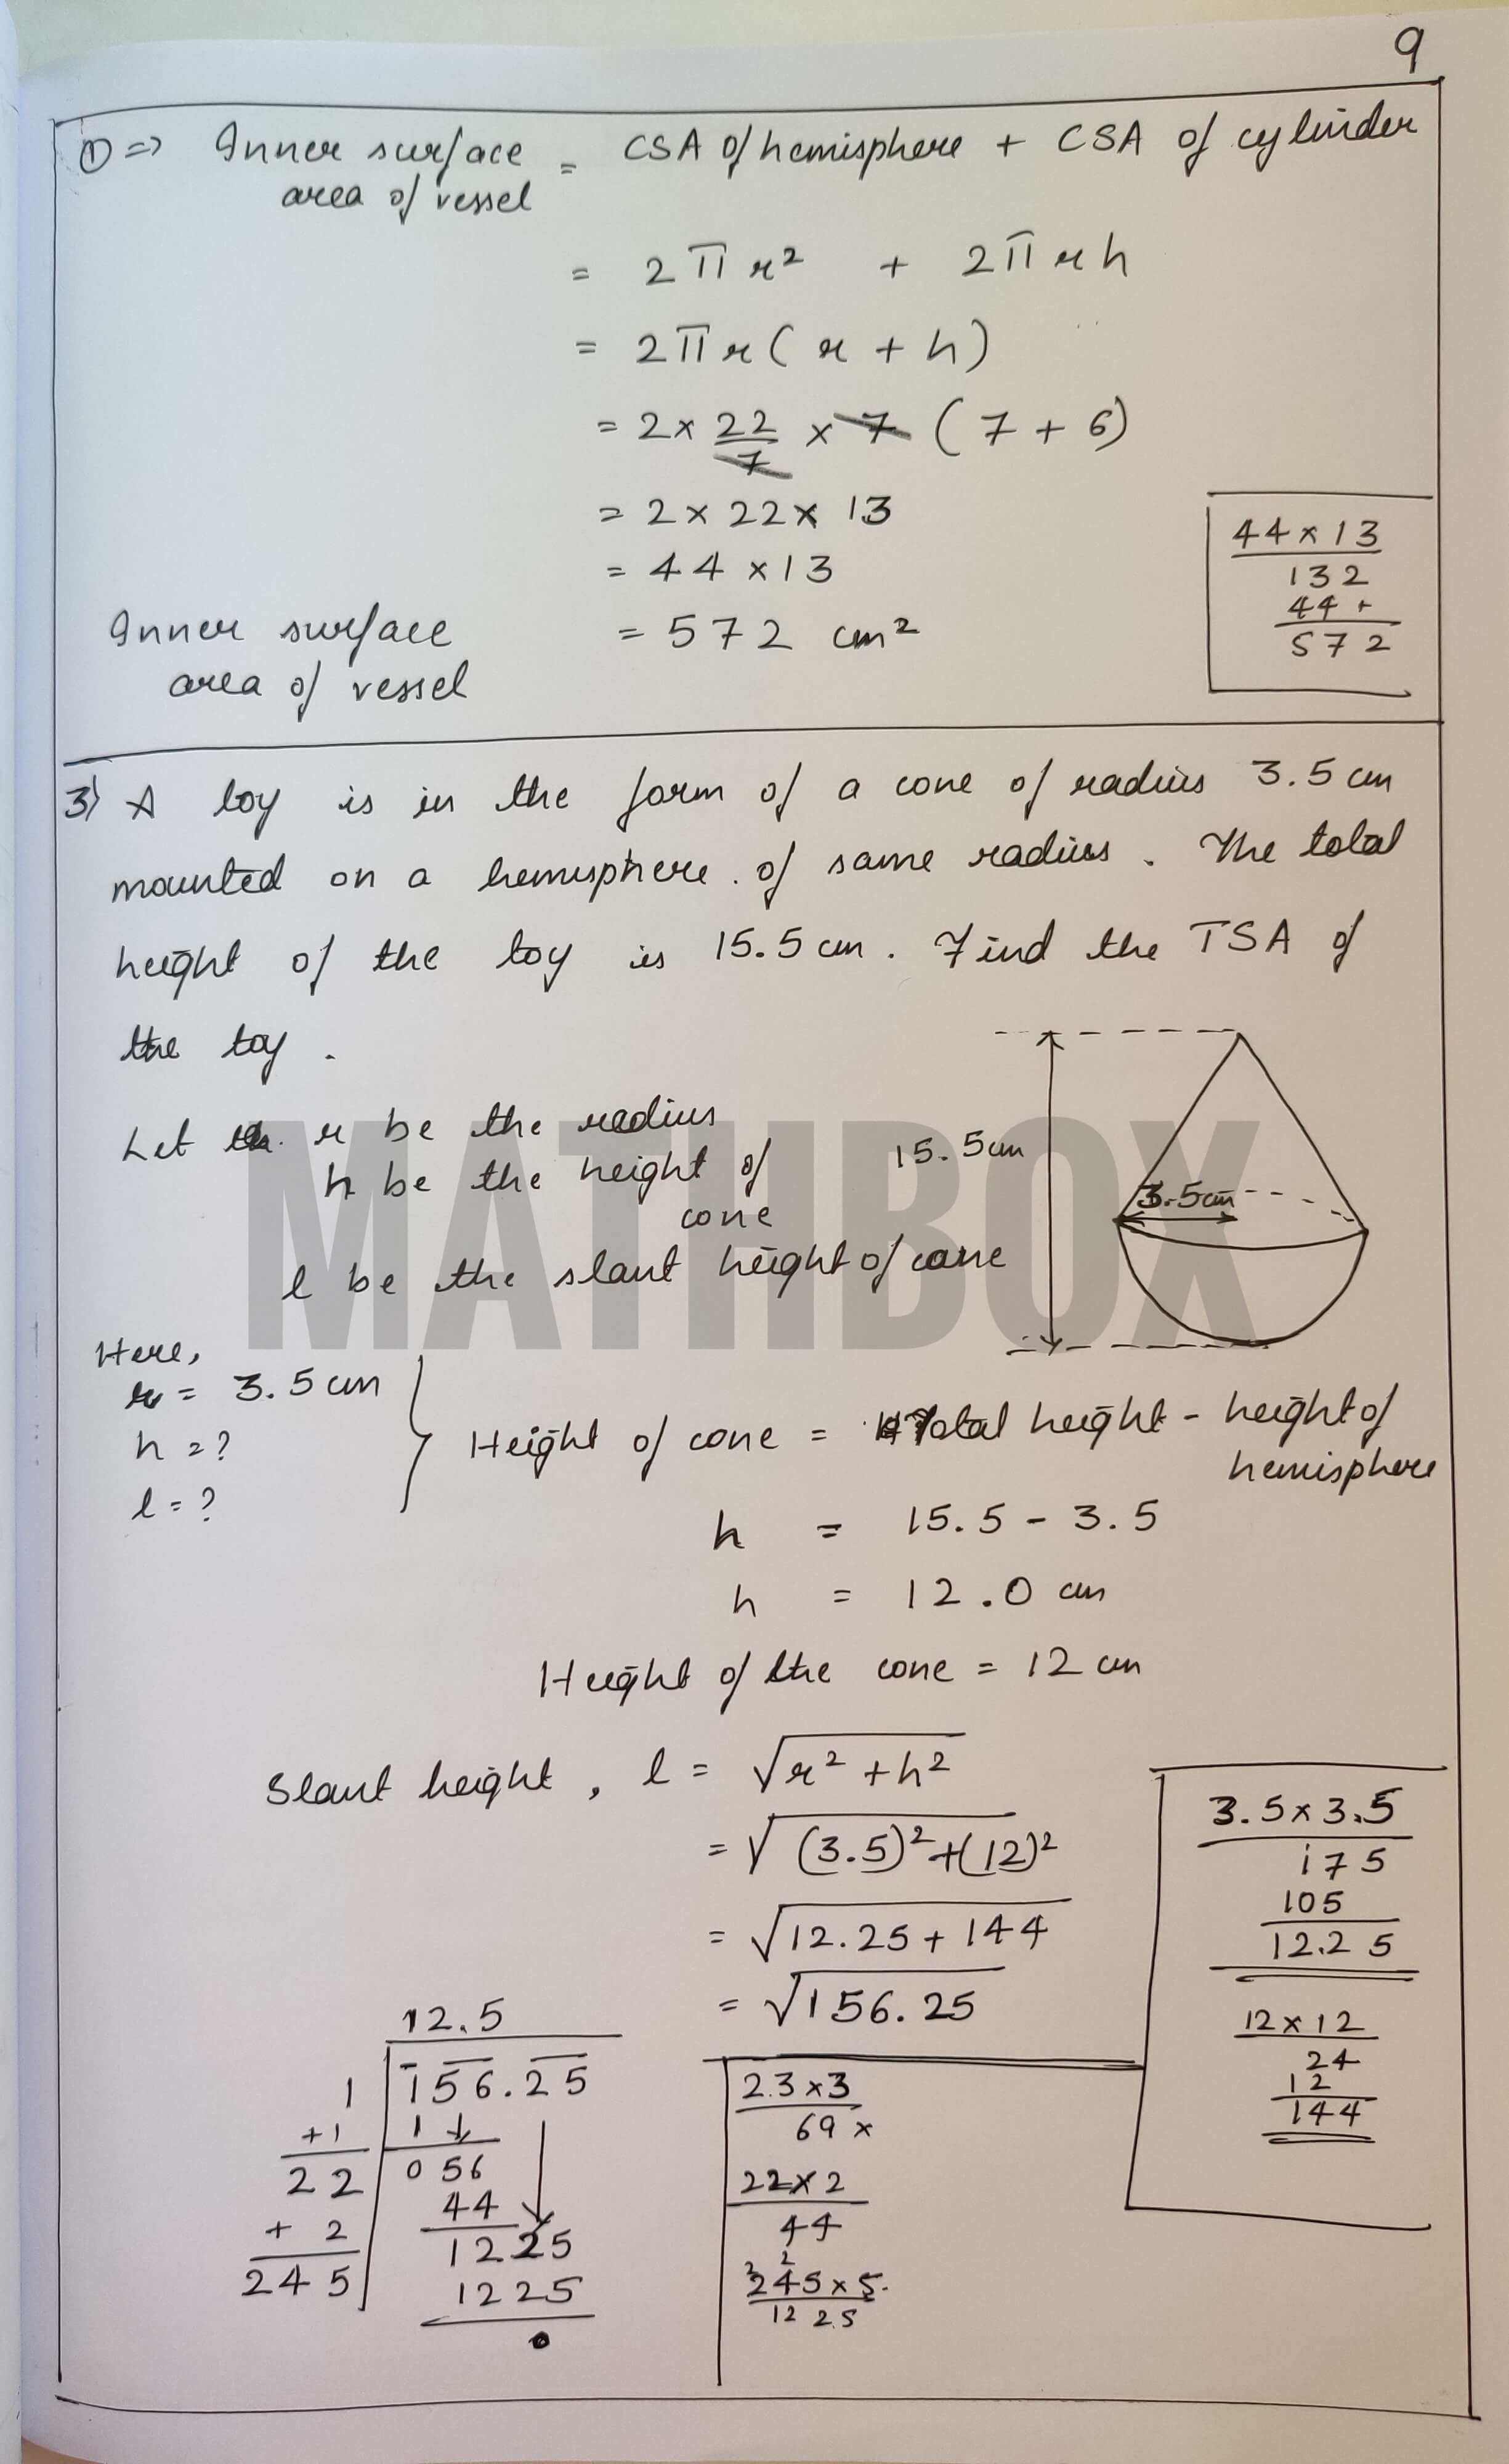 9
① => Inner surface = CSA of hemisphere + CSA of cylinder
area of vessel
= 2πr² + 2πrh
= 2πr(r + h)
= 2 × 22/7 × 7 (7 + 6)
= 2 × 22 × 13
= 44 × 13
Inner surface = 572 cm²
area of vessel
44 × 13
132
44 +
572
3) A toy is in the form of a cone of radius 3.5 cm
mounted on a hemisphere. of same radius. The total
height of the toy is 15.5 cm. Find the TSA of
the toy.
Let r be the radius
h be the height of
cone
l be the slant height of cone
15.5cm
3.5cm
MATHBOX
Here,
r = 3.5 cm
h = ?
l = ?
Height of cone = Total height - height of
hemisphere
h = 15.5 - 3.5
h = 12.0 cm
Height of the cone = 12 cm
Slant height, l = √r² + h²
= √(3.5)² + (12)²
= √12.25 + 144
= √156.25
3.5 × 3.5
175
105
12.25
12 × 12
24
12
144
12.5
1 156.25
+1 1
22 056
+ 2 44
245 1225
1225
0
23 × 3
69 ×
22 × 2
44
2 2
245 × 5
1225